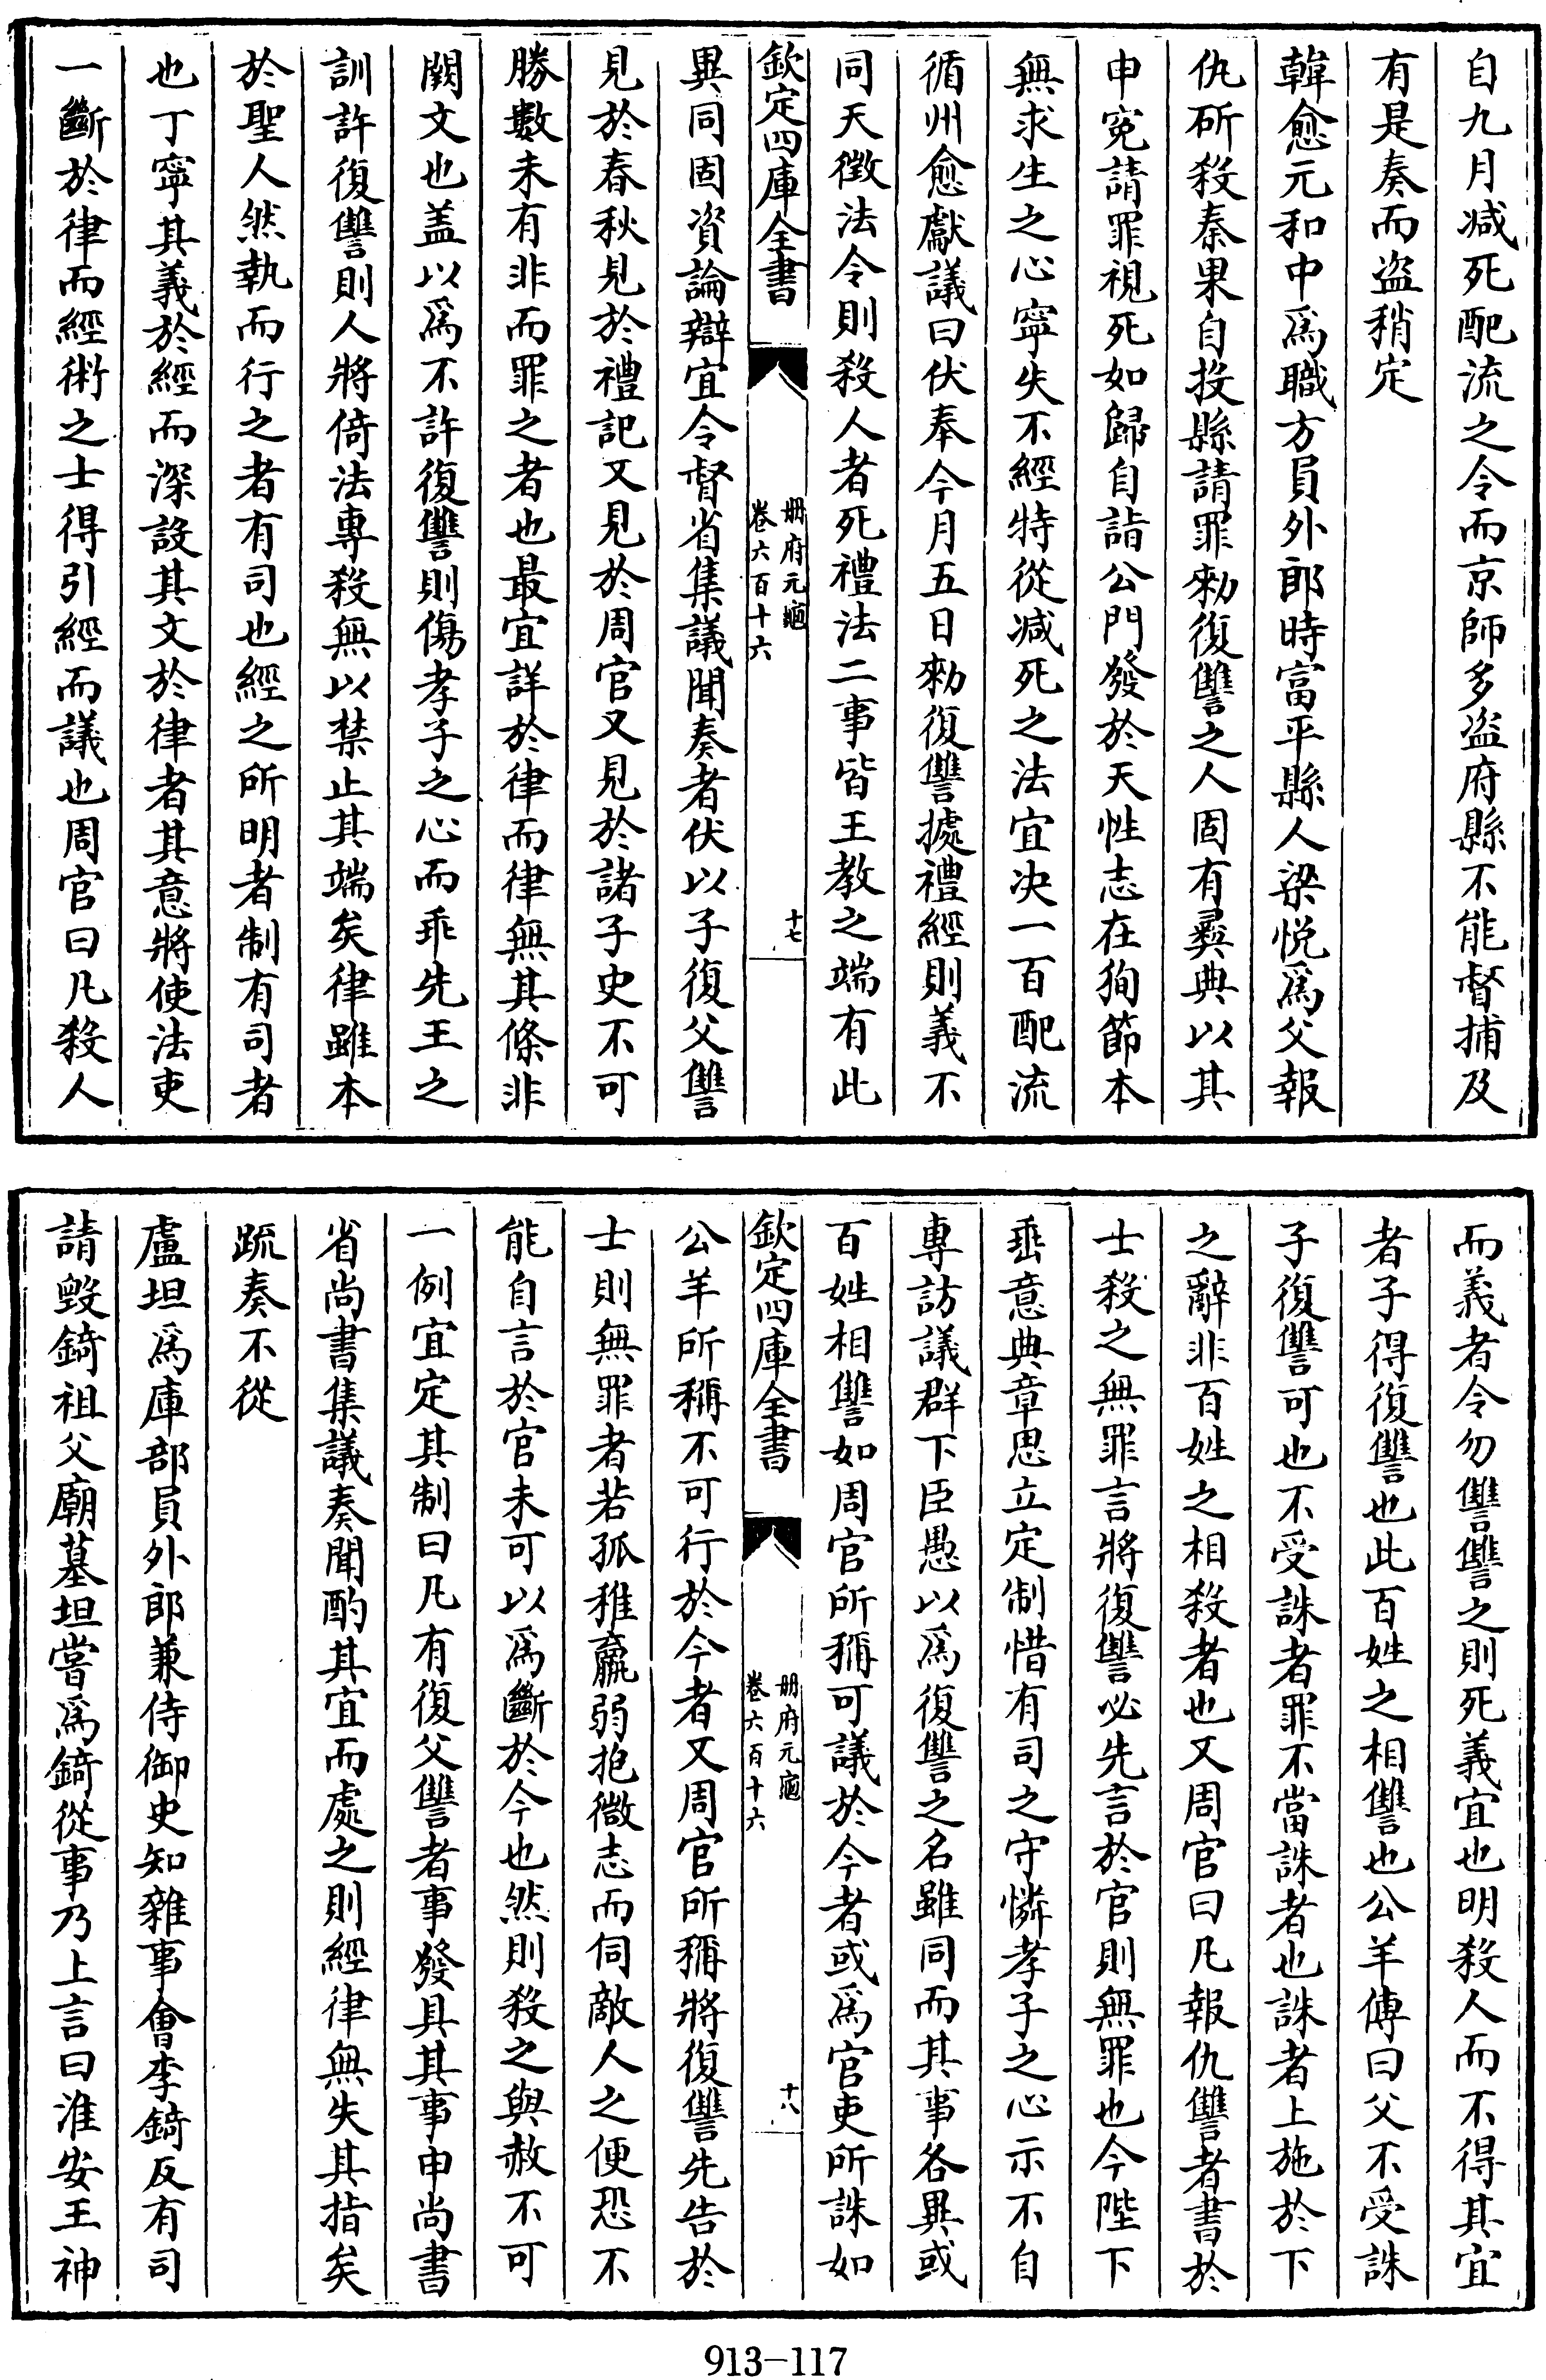 自九月减死配流之令而京師多盗府縣不能督捕及
有是奏而盗稍定
韓愈元和中爲職方員外郎時富平縣人梁悦爲父報
仇斫殺秦果自投縣請罪勑復讐之人固有彛典以其
申寃請罪視死如歸自詣公門發於天性志在狥節本
無求生之心寧失不經特從减死之法宜决一百配流
循州愈獻議曰伏奉今月五日勑復讐據禮經則義不
同天徴法令則殺人者死禮法二事皆王教之端有此
欽定四庫全書
册府元龜
卷六百十六
十七
異同固資論辯宜令督省集議聞奏者伏以子復父讐
見於春秋見於禮記又見於周官又見於諸子史不可
勝數未有非而罪之者也最宜詳於律而律無其條非
闕文也盖以爲不許復讐則傷孝子之心而乖先王之
訓許復讐則人將倚法專殺無以禁止其端矣律雖本
於聖人然執而行之者有司也經之所明者制有司者
也丁寧其義於經而深設其文於律者其意將使法吏
一斷於律而經術之士得引經而議也周官曰凡殺人
而義者令勿讐讐之則死義宜也明殺人而不得其宜
者子得復讐也此百姓之相讐也公羊傳曰父不受誅
子復讐可也不受誅者罪不當誅者也誅者上施於下
之辭非百姓之相殺者也又周官曰凡報仇讐者書於
士殺之無罪言將復讐必先言於官則無罪也今陛下
垂意典章思立定制惜有司之守憐孝子之心示不自
專訪議群下臣愚以爲復讐之名雖同而其事各異或
百姓相讐如周官所稱可議於今者或爲官吏所誅如
欽定四庫全書
册府元龜
卷六百十六
十八
公羊所稱不可行於今者又周官所稱將復讐先告於
士則無罪者若孤稚羸弱抱微志而伺敵人之便恐不
能自言於官未可以爲斷於今也然則殺之與赦不可
一例宜定其制曰凡有復父讐者事發具其事申尚書
省尚書集議奏聞酌其宜而處之則經律無失其指矣
疏奏不從
盧坦爲庫部員外郎兼侍御史知雜事會李錡反有司
請毁錡祖父廟墓坦嘗爲錡從事乃上言曰淮安王神
913—117